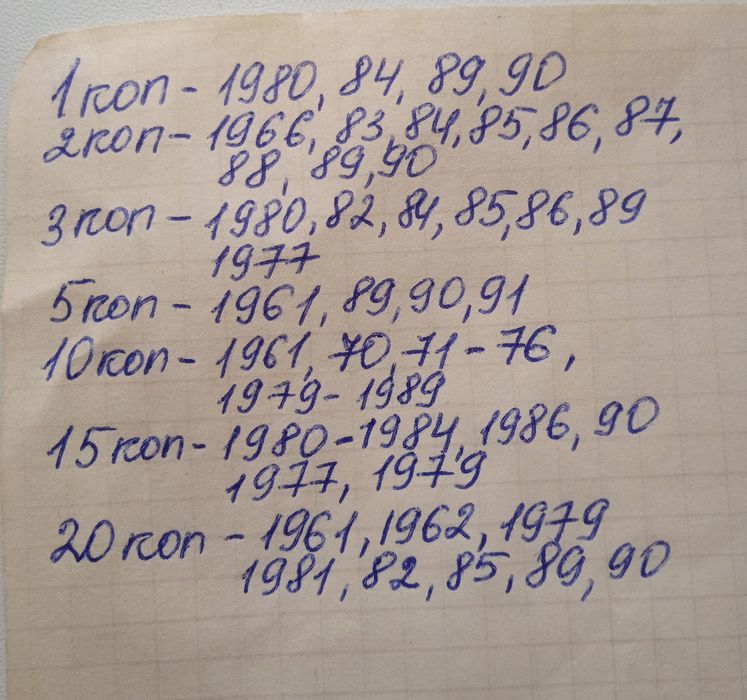 1коп - 1980, 84, 89, 90
2коп - 1966, 83, 84, 85, 86, 87,
88, 89, 90
3коп - 1980, 82, 84, 85, 86, 89
1977
5коп - 1961, 89, 90, 91
10коп - 1961, 70, 71 - 76,
1979 - 1989
15коп - 1980 - 1984, 1986, 90
1977, 1979
20коп - 1961, 1962, 1979
1981, 82, 85, 89, 90